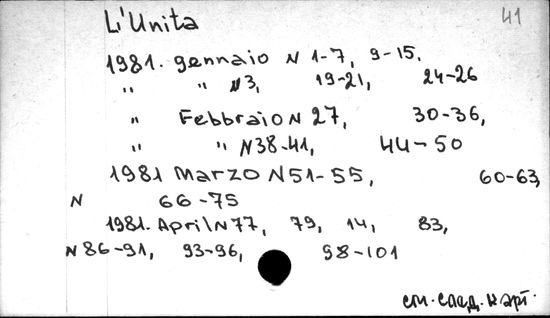 41
L'Unita
1981. gennaio N 1-7, 9-15,
" " N3, 19-21, 24-26
" Febbraio N 27, 30-36,
" " N38-41, 44-50
1981 Marzo N51-55, 60-63,
N 66-75
1981. April N77, 79, 14, 83,
N 86-91, 93-96, 98-101
см. след. карт.